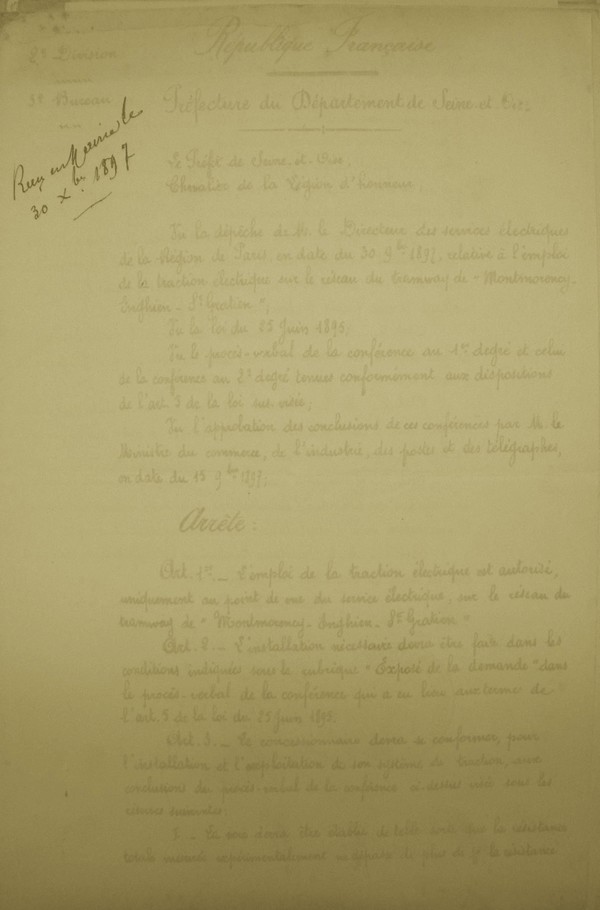 République Française
2e Division
3e Bureau
Préfecture du Département de Seine et Oise.
Reçu en Mairie le
30 Xbre 1897
Le Préfet de Seine-et-Oise,
Chevalier de la Légion d'honneur,
Vu la dépêche de M. le Directeur des services électriques
de la Région de Paris en date du 30 9bre 1897, relative à l'emploi
de la traction électrique sur le réseau du tramway de "Montmorency-
Enghien-St Gratien";
Vu la loi du 25 Juin 1895;
Vu le procès-verbal de la conférence au 1er degré et celui
de la conférence au 2e degré tenues conformément aux dispositions
de l'art. 5 de la loi sus-visée;
Vu l'approbation des conclusions de ces conférences par M. le
Ministre du commerce, de l'industrie, des postes et des télégraphes,
en date du 15 9bre 1897;
Arrête:
Art. 1er. _ L'emploi de la traction électrique est autorisé,
uniquement au point de vue du service électrique, sur le réseau du
tramway de "Montmorency-Enghien-St Gratien"
Art. 2. _ L'installation nécessaire devra être faite dans les
conditions indiquées sous la rubrique "Exposé de la demande" dans
le procès-verbal de la conférence qui a eu lieu aux terme de
l'art. 5 de la loi du 25 Juin 1895.
Art. 3. _ Le concessionnaire devra se conformer, pour
l'installation et l'exploitation de son système de traction, aux
conclusions du procès-verbal de la conférence ci-dessus visée sous les
réserves suivantes:
_ La voie devra être établie de telle sorte que la résistance
totale mesurée expérimentalement ne dépasse de plus de la résistance